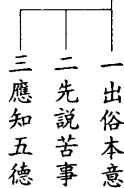 一出俗本意
二先説苦事
三應知五德